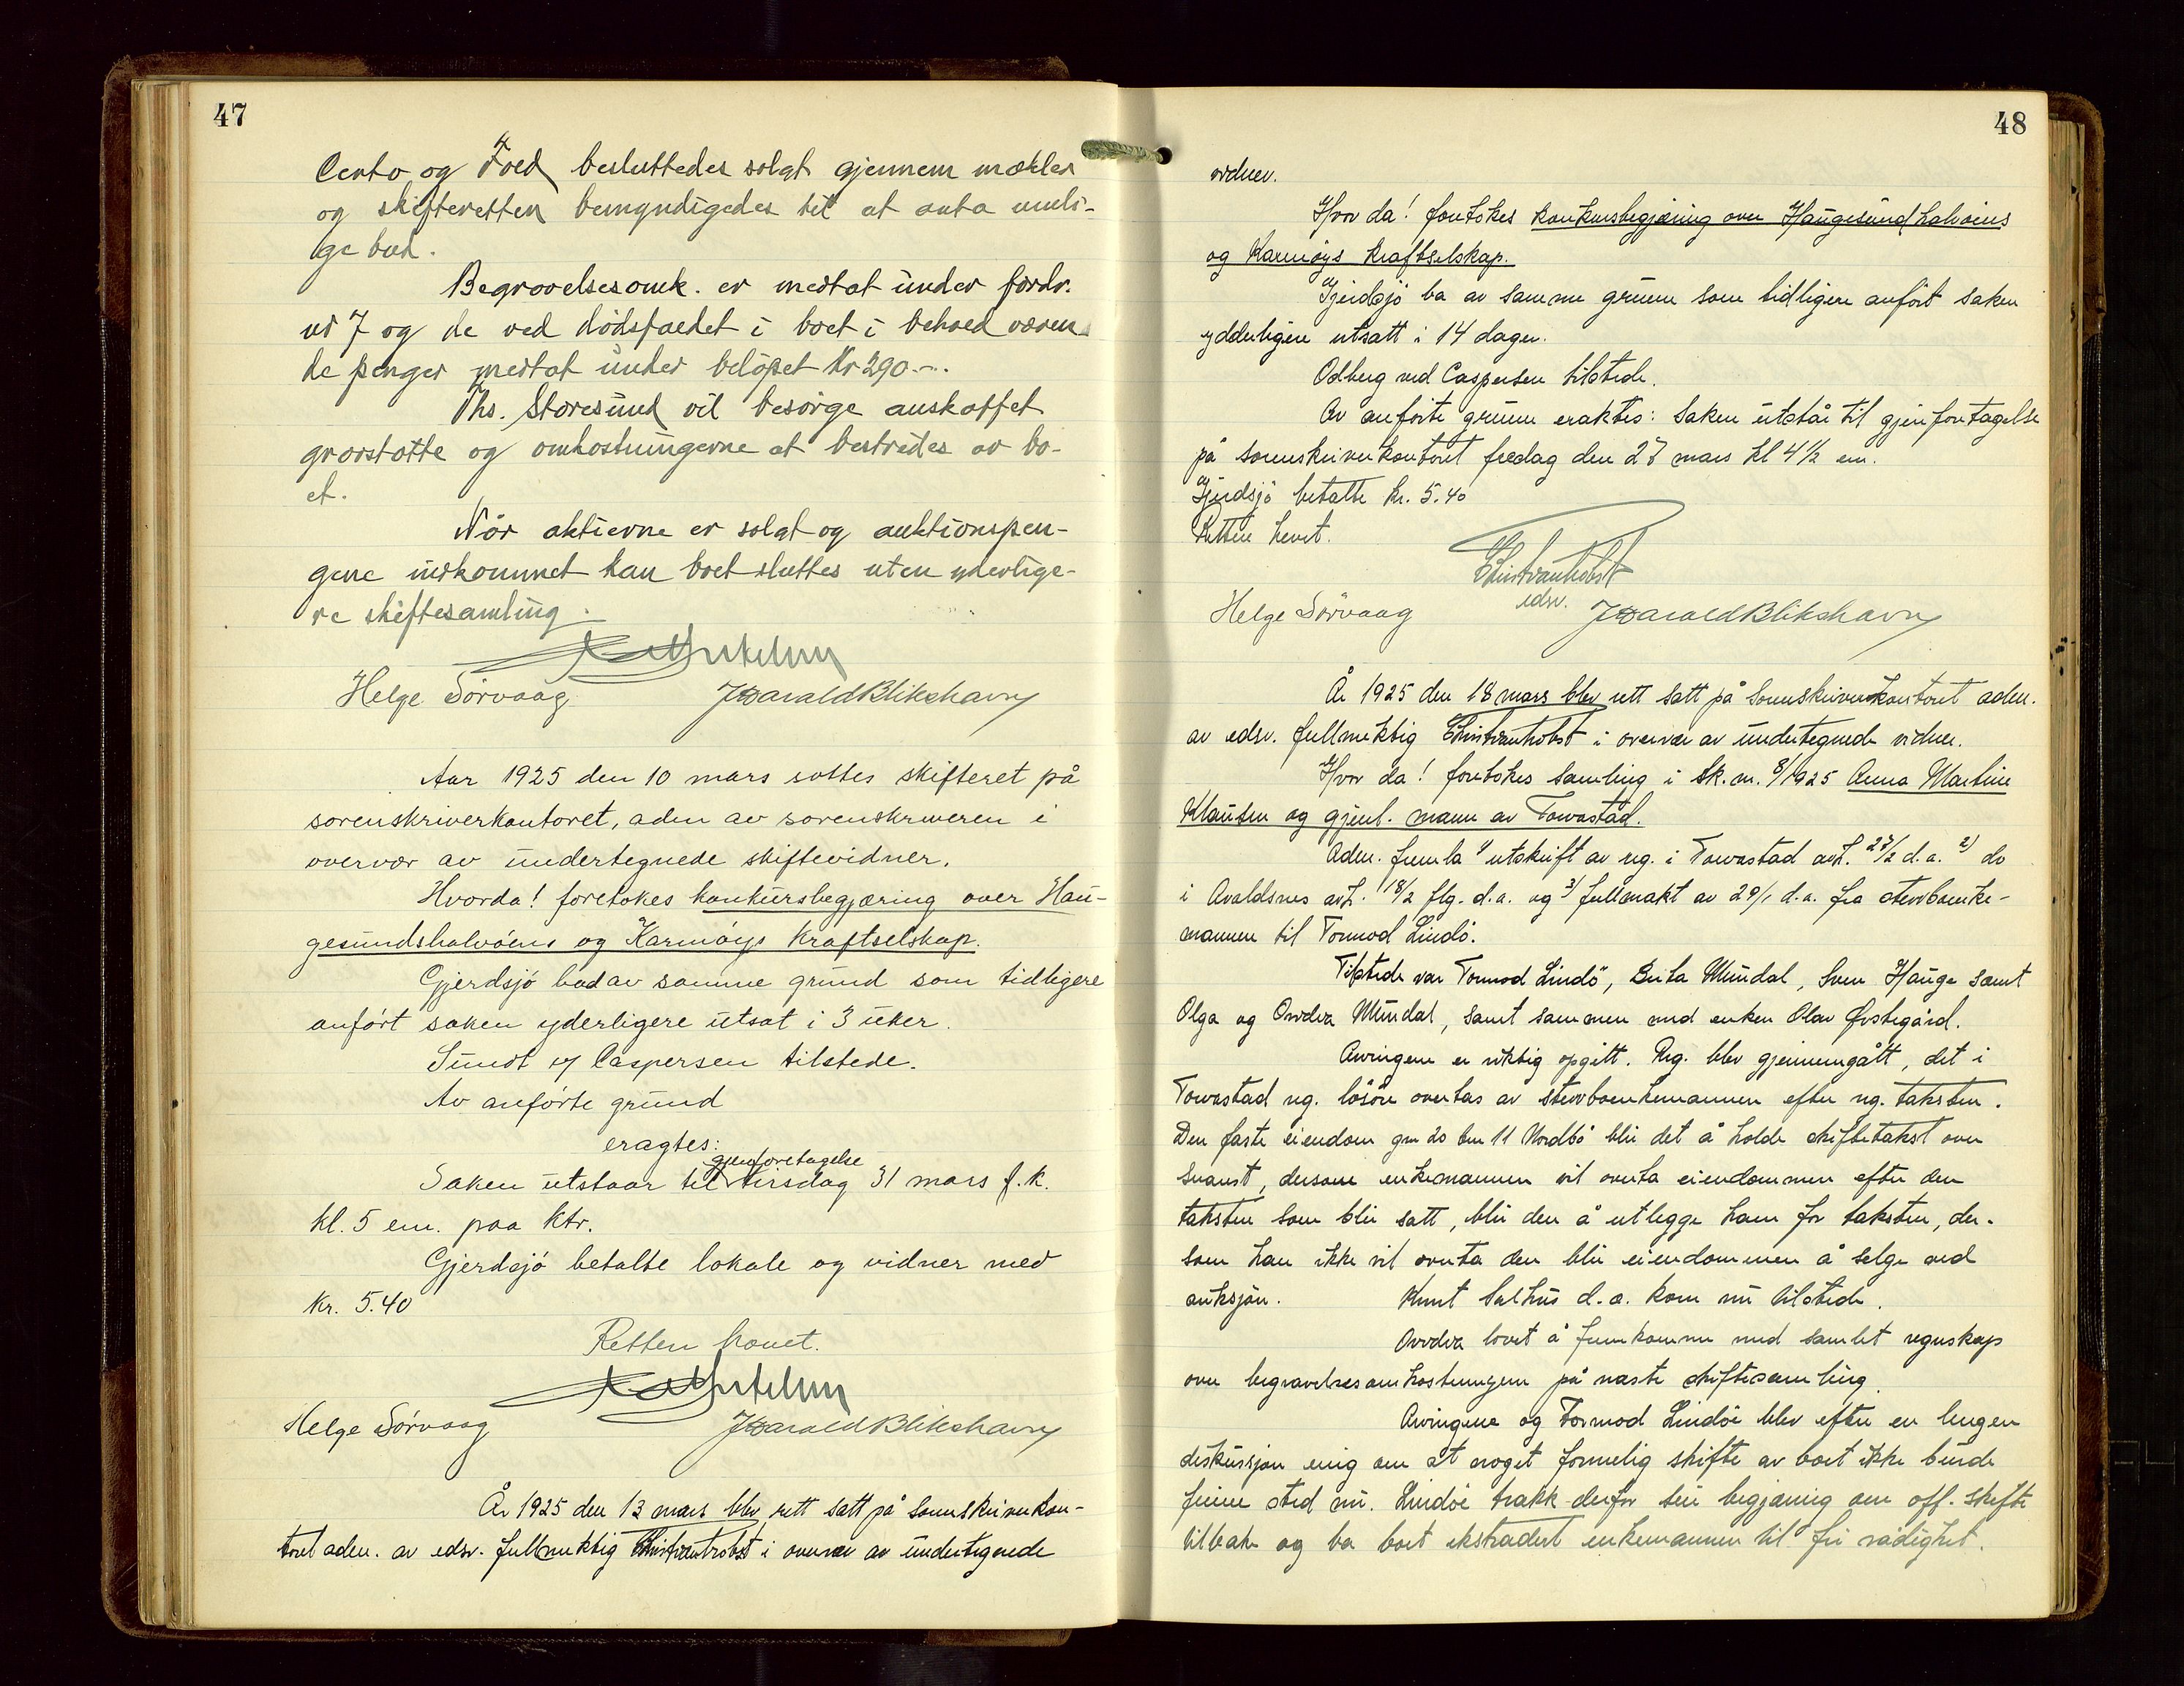 47
Cento og Foed besluttedes solgt gjennem mækler
og skifteretten bemyndigedes til at anta muli-
ge bud.
Begravelsesomk. er medtat under fordr.
nr 7 og de ved dödsfaldet i boet i behold væren-
de penger medtat under belöpet kr 290.-.
Ths. Storesund vil besörge anskaffet
gravstötte og omkostningerne at bestrides av bo-
et.
Når aktierne er solgt og auktionspen-
gene indkommet kan boet sluttes uten yderlige-
re skiftesamling.
Helge Sörvaag Harald Blikshavn
Aar 1925 den 10 mars sattes skifteret på
sorenskriverkontoret, adm av sorenskriveren i
overvær av undertegnede skiftevidner.
Hvorda! foretokes konkursbegjæring over Hau-
gesundshalvöens og Karmöys kraftselskap.
Gjerdsjö bad av samme grund som tidligere
anfört saken yderligere utsat i 3 uker.
Sundt og Caspersen tilstede.
Av anförte grund
eragtes:
gjenforetagelse
Saken utstaar til tirsdag 31 mars f.k.
kl. 5 em. paa ktr.
Gjerdsjö betalte lokale og vidner med
kr. 5.40
Retten hævet.
Helge Sörvaag Harald Blikshavn
År 1925 den 13 mars blev rett satt på sorenskriverkon-
toret adm. av edsv. fullmektig i overvær av undertegnede
48
vidner.
Hvor da! foretokes konkursbegjæring over Haugesundhalvöens
og Karmöys kraftselskap.
Gjerdsjö ba av samme grunn som tidligere anfört saken
ydderligere utsatt i 14 dager.
Odberg ved Caspersen tilstede.
Av anförte grunn eraktes: Saken utstår til gjenforetagelse
på sorenskriverkontoret fredag den 27 mars kl 4 1/2 em.
Gjerdsjö betalte kr. 5.40
Retten hevet.
edsv.
Helge Sörvaag Harald Blikshavn
År 1925 den 18 mars blev rett satt på Sorenskriverkontoret adm.
av edsv. fullmektig i overvær av undertegnede vidner.
Hvor da! foretokes samling i Sk.nr. 8/1925 Anna Martine
Klausen og gjenl. mann av Torvastad.
Adm. fremla 1) utskrift av reg. i Torvastad avh. 27/2 d.a. 2) do
i Avaldsnes avh. 18/2 flg. d.a. og 3) fullmakt av 29/1 d.a. fra stervboenke-
mannen til Tormod Lindö.
Tilstede var Tormod Lindö, Berta Mundal, Sven Hauge samt
Olga og Mundal, samt sammen med enken Olav Östegård.
Arvingene er riktig opgitt. Reg. blev gjennemgått, det i
Torvastad reg. lösöre overtas av stervboenkemannen efter reg. taksten.
Den faste eiendom gnr 20 bnr 11 Nordbö blir det å holde skiftetakst over
snarest, dersom enkemannen vil overta eiendommen efter den
taksten som blir satt, blir den å utlegge ham for taksten, der-
som han ikke vil overta den blir eiendommen å selge ved
auksjon. Knut Salhus d.a. kom nu tilstede.
lovet å fremkomme med samlet regnskap
over begravelsesomkostningene på næste skiftesamling.
Arvingene og Tormod Lindöe blev efter en lengere
diskussjon enig om at noget formelig skifte av boet ikke burde
finne sted nu. Lindöe trakk derfor sin begjæring om off. skifte
tilbake og ba boet ekstradert enkemannen til fri rådighet.